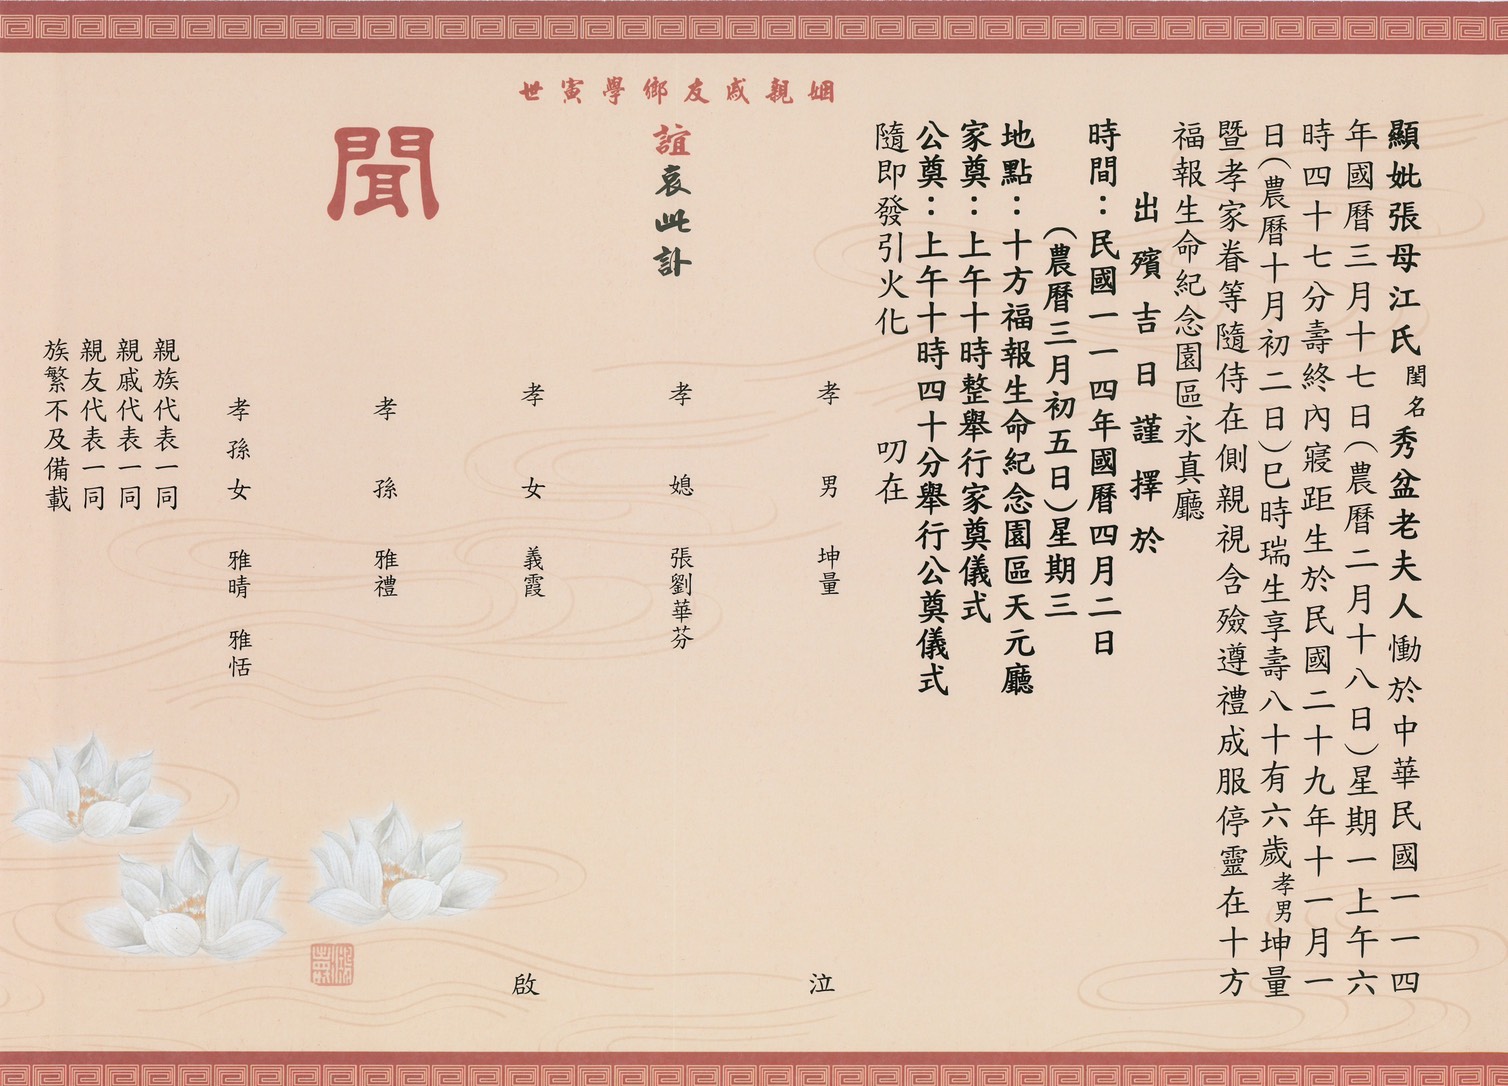 顯妣張母江氏閨名秀盆老夫人慟於中華民國一一四
年國曆三月十七日(農曆二月十八日)星期一上午六
時四十七分壽終內寢距生於民國二十九年十一月一
日(農曆十月初二日)巳時瑞生享壽八十有六歲孝男坤量
暨孝家眷等隨侍在側親視含殮遵禮成服停靈在十方
福報生命紀念園區永真廳
出殯吉日謹擇於
時間:民國一一四年國曆四月二日
(農曆三月初五日)星期三
地點:十方福報生命紀念園區天元廳
家奠:上午十時整舉行家奠儀式
公奠:上午十時四十分舉行公奠儀式
隨即發引火化 叨在
姻親戚友鄉學寅世
誼哀此訃
聞
孝男 坤量
孝媳 張劉華芬
孝女 義霞
孝孫 雅禮
孝孫女 雅晴 雅恬
泣
啟
親族代表一同
親戚代表一同
親友代表一同
族繁不及備載